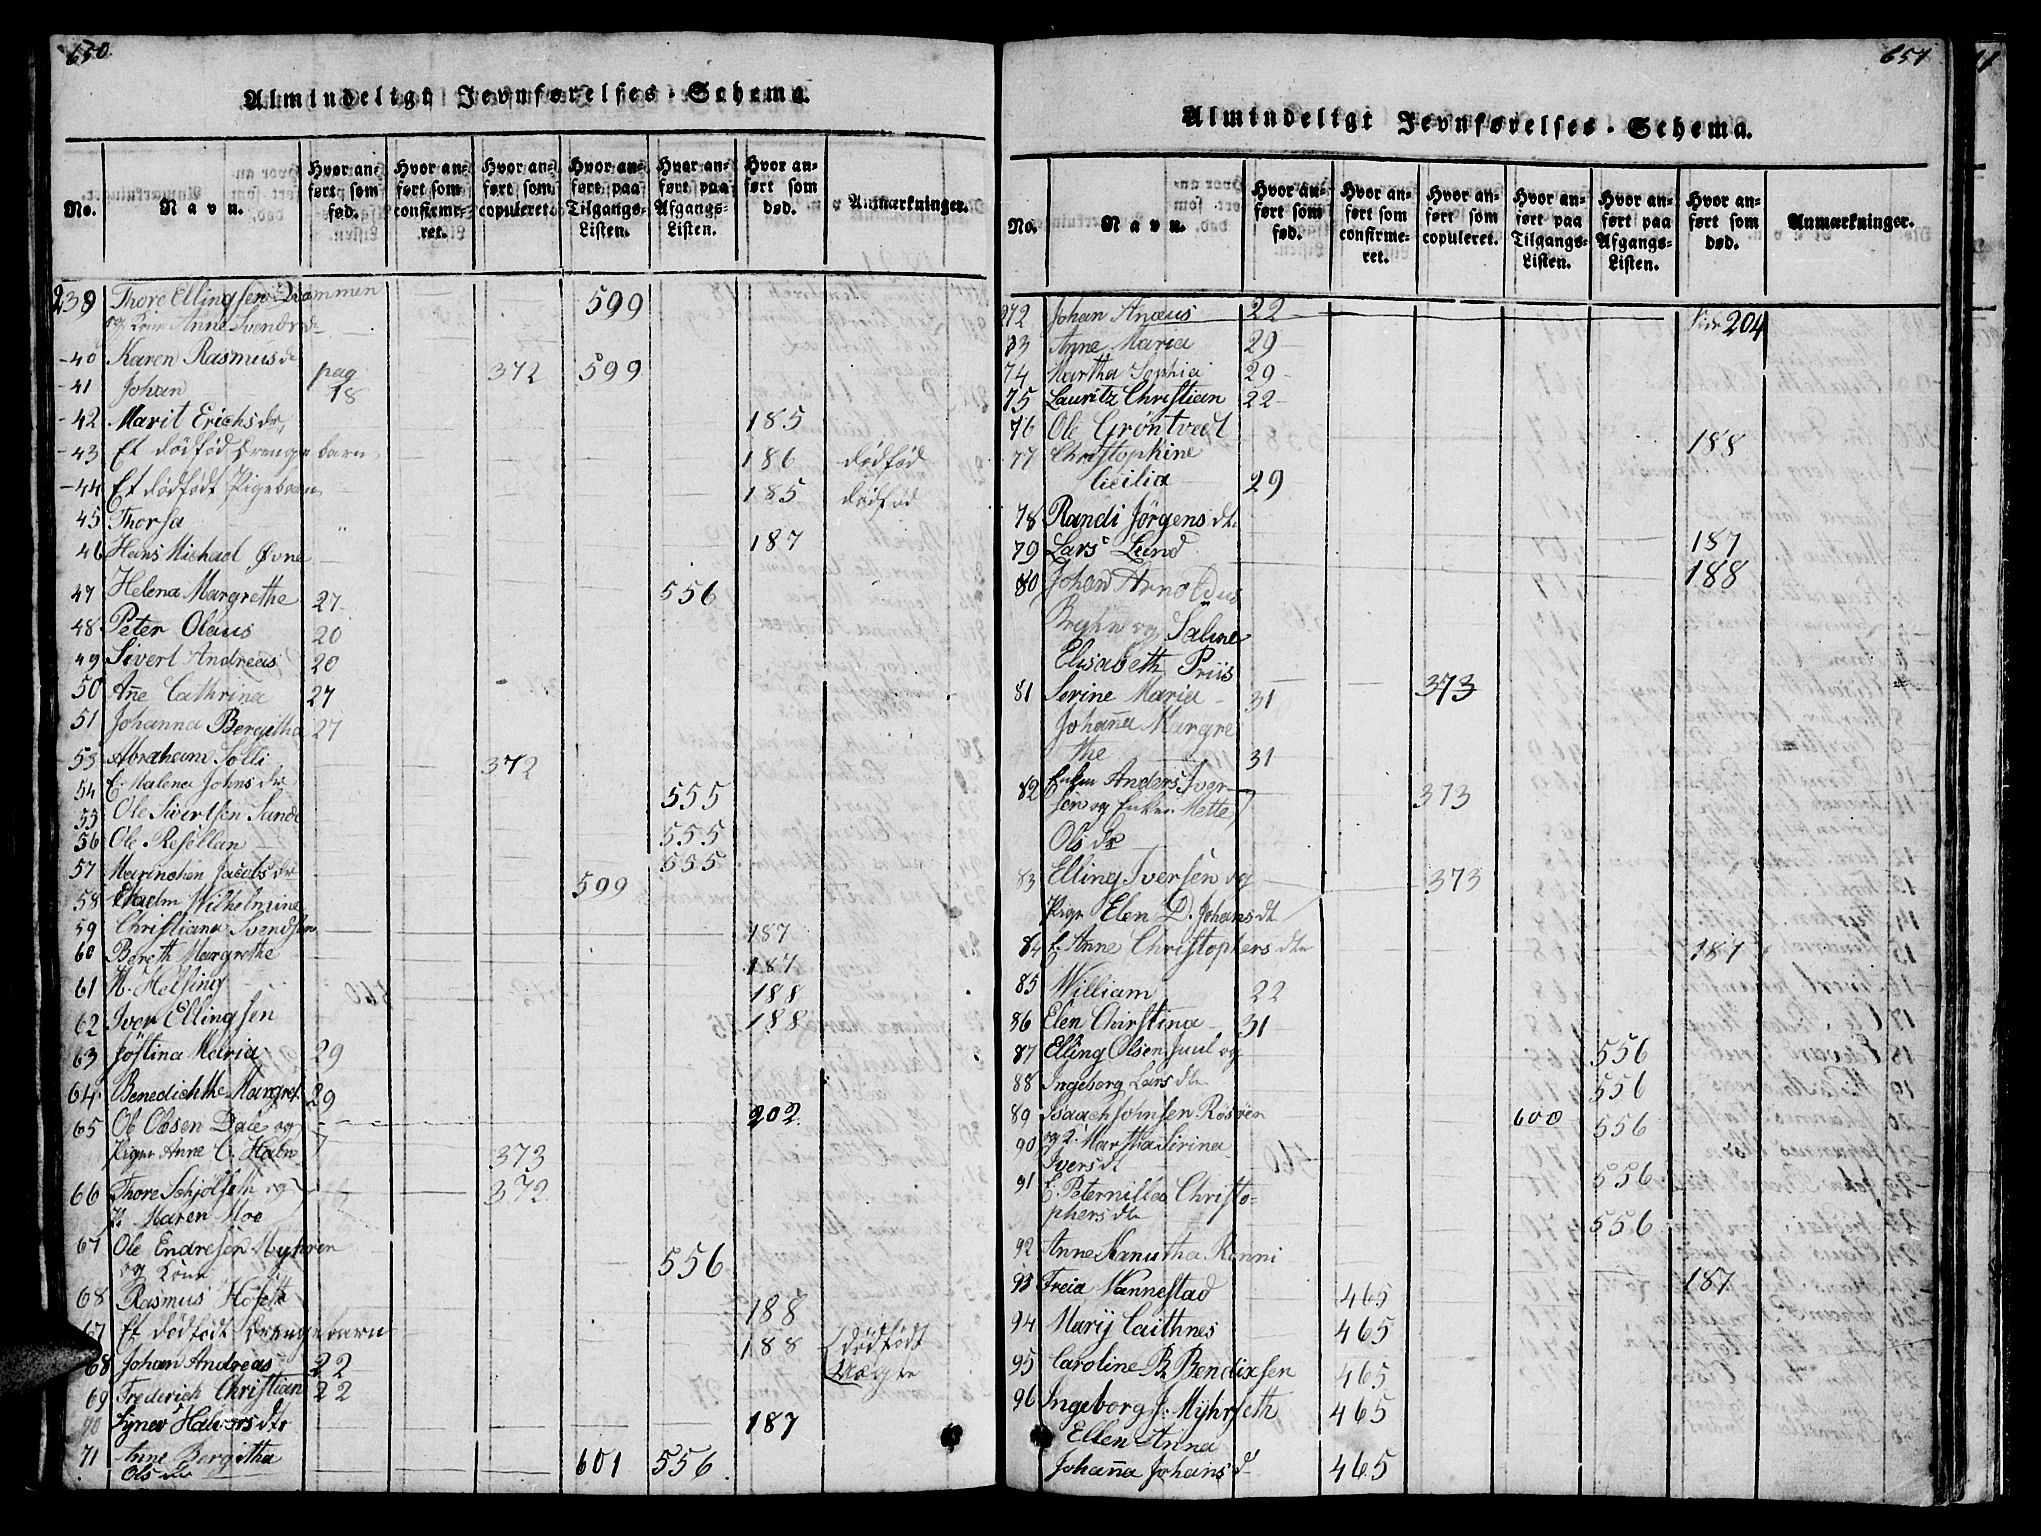 650.
Almindeligt Jevnførelses-Schema.
No. Navn. Hvor anført som fød. Hvor anført som confirmeret. Hvor anført som copuleret. Hvor anført paa Tilgangs-Listen. Hvor anført paa Afgangs-Listen. Hvor anført som død. Anmærkninger.
239 Thore Ellingsen 599
og Kone Anne Svendsd
-40 Karen Rasmusd 372 599
-41 Johan pag 18
-42 Marit Erichsdr 185
-43 Et dødfød Drengebarn 186 dødfød
-44 Et dødfødt Pigebarn 185 dødfød
45 Thorsa
46 Hans Michael Øvne 187
47 Helena Margrethe 27 556
48 Peter Olaus 20
49 Sivert Andreas 20
50 Ane Cathrina 27
51 Johanna Bergitha 27
53 Abraham Solli 372
54 E. Malena Johnsdr 555
55 Ole Sivertsen Sunde 555
56 Ole Resellan 555
57 Marinchen Jacobsdr 599
58 Wilhelmine
59 Christiana Svendsen 187
60 Bereth Margrethe 187
61 H. Helsing 188
62 Iver Ellingsen 188
63 Jøstina Maria 29
64 Benedichthe Margret 29
65 Ol Olsen Dale og 202
Pigen Anne C. 373
66 Thore og 372
P. Maren Moe
67 Ole Endresen Myhren
og Kone 556
68 Rasmus 188
67 Et dødfødt Drengebarn 188 dødfødt
68 Johan Andreas 22 Uægte
69 Frederich Christian 22
70 Synev Halvorsdtr 187
71 Anne Bergitha
Olsdr 601 556
651
Almindeligt Jevnførelses-Schema.
No. Navn. Hvor anført som fød. Hvor anført som confirmeret. Hvor anført som copuleret. Hvor anført paa Tilgangs-Listen. Hvor anført paa Afgangs-Listen. Hvor anført som død. Anmærkninger.
272 Johan Anæus 22 204
73 Anne Maria 29
74 Martha Sophia 29
75 Lauritz Christian 22
76 Ole Grøntvedt 188
77 Christophine
Cicilia 29
78 Randi Jørgensdtr 187
79 Lars Lund 188
80 Johan Arnoldus
og Saline
Elisabeth Priis 373
81 Serine Maria 31
Johaña Margre
the 31
82 Enkem Anders Iver
sen og Enken Mette 373
Olsdr
83 Elling Iversen og 373
Pige Elen D. Johansdt
84 E. Anne Christophersdtr 187
85 William 22
86 Elen Christina 31
87 Elling Olsen Juul og 556
88 Ingeborg Larsdtr 556
89 Isaach Johnsen Røsven 600 556
90 og K. Martha Serina
Iversdt 556
91 E. Peternilla Christo-
phersdtr 556
92 Anne Kanutha Rønni 187
93 Freia Vannestad 465
94 Marij Caithnes 465
95 Caroline B. Bendixsen 465
96 Ingeborg J. Myhrseth 465
Ellen Anna
Johaña Johansd 465